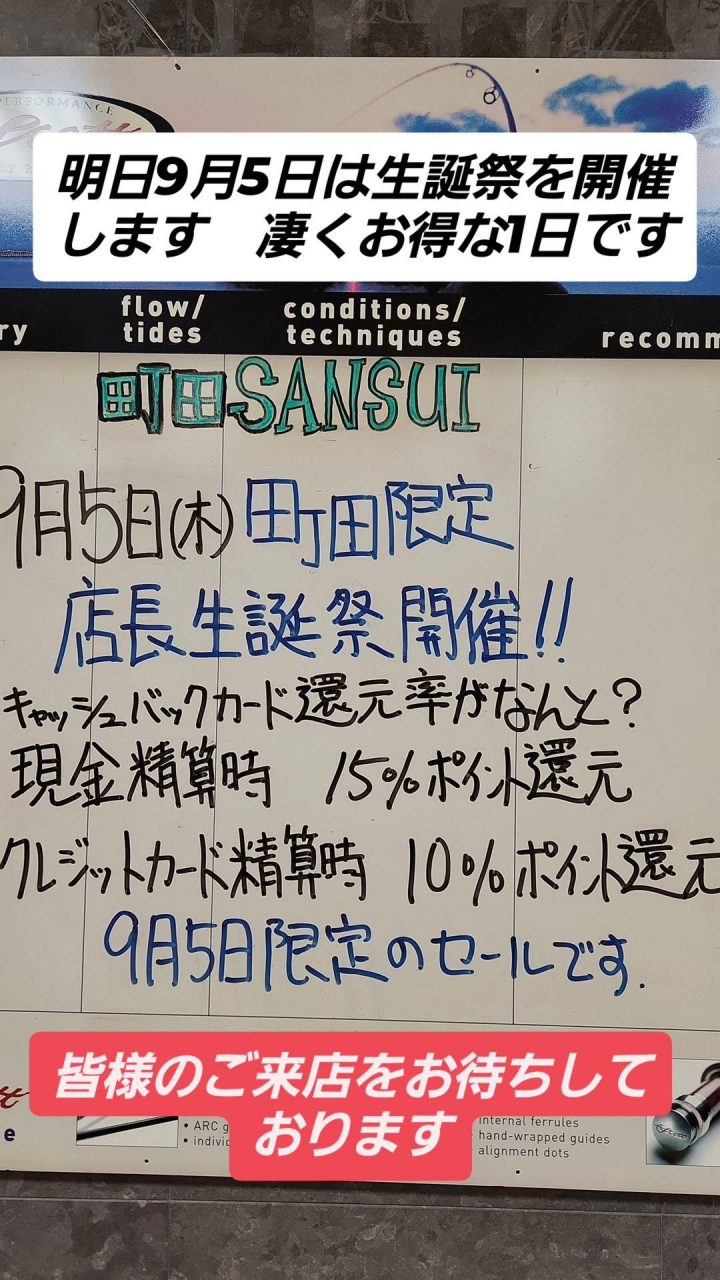 PERFORMANCE
Scott
明日9月5日は生誕祭を開催
します　凄くお得な1日です
ry
flow/
tides
conditions/
techniques
recomm
町田SANSUI
9月5日(木) 町田限定
店長生誕祭開催!!
キャッシュバックカード還元率がなんと？
現金精算時　15%ポイント還元
クレジットカード精算時　10%ポイント還元
9月5日限定のセールです.
皆様のご来店をお待ちして
おります
e
• ARC g
• indivi
internal ferrules
hand-wrapped guides
alignment dots
Scott